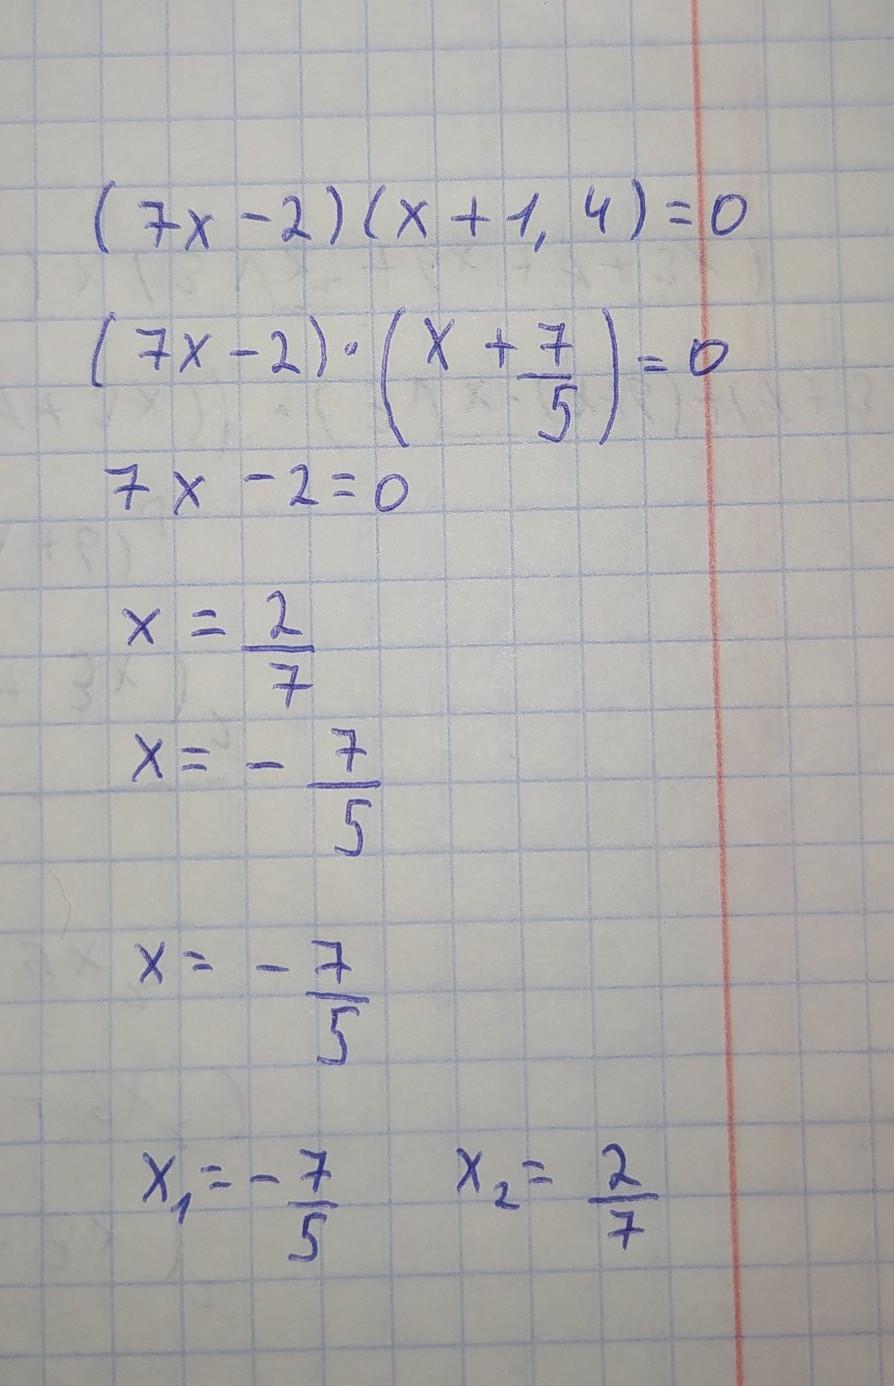 (7x-2)(x+1,4)=0
(7x-2)·(x+7/5)=0
7x-2=0
x=2/7
x=-7/5
x=-7/5
x₁=-7/5 x₂=2/7